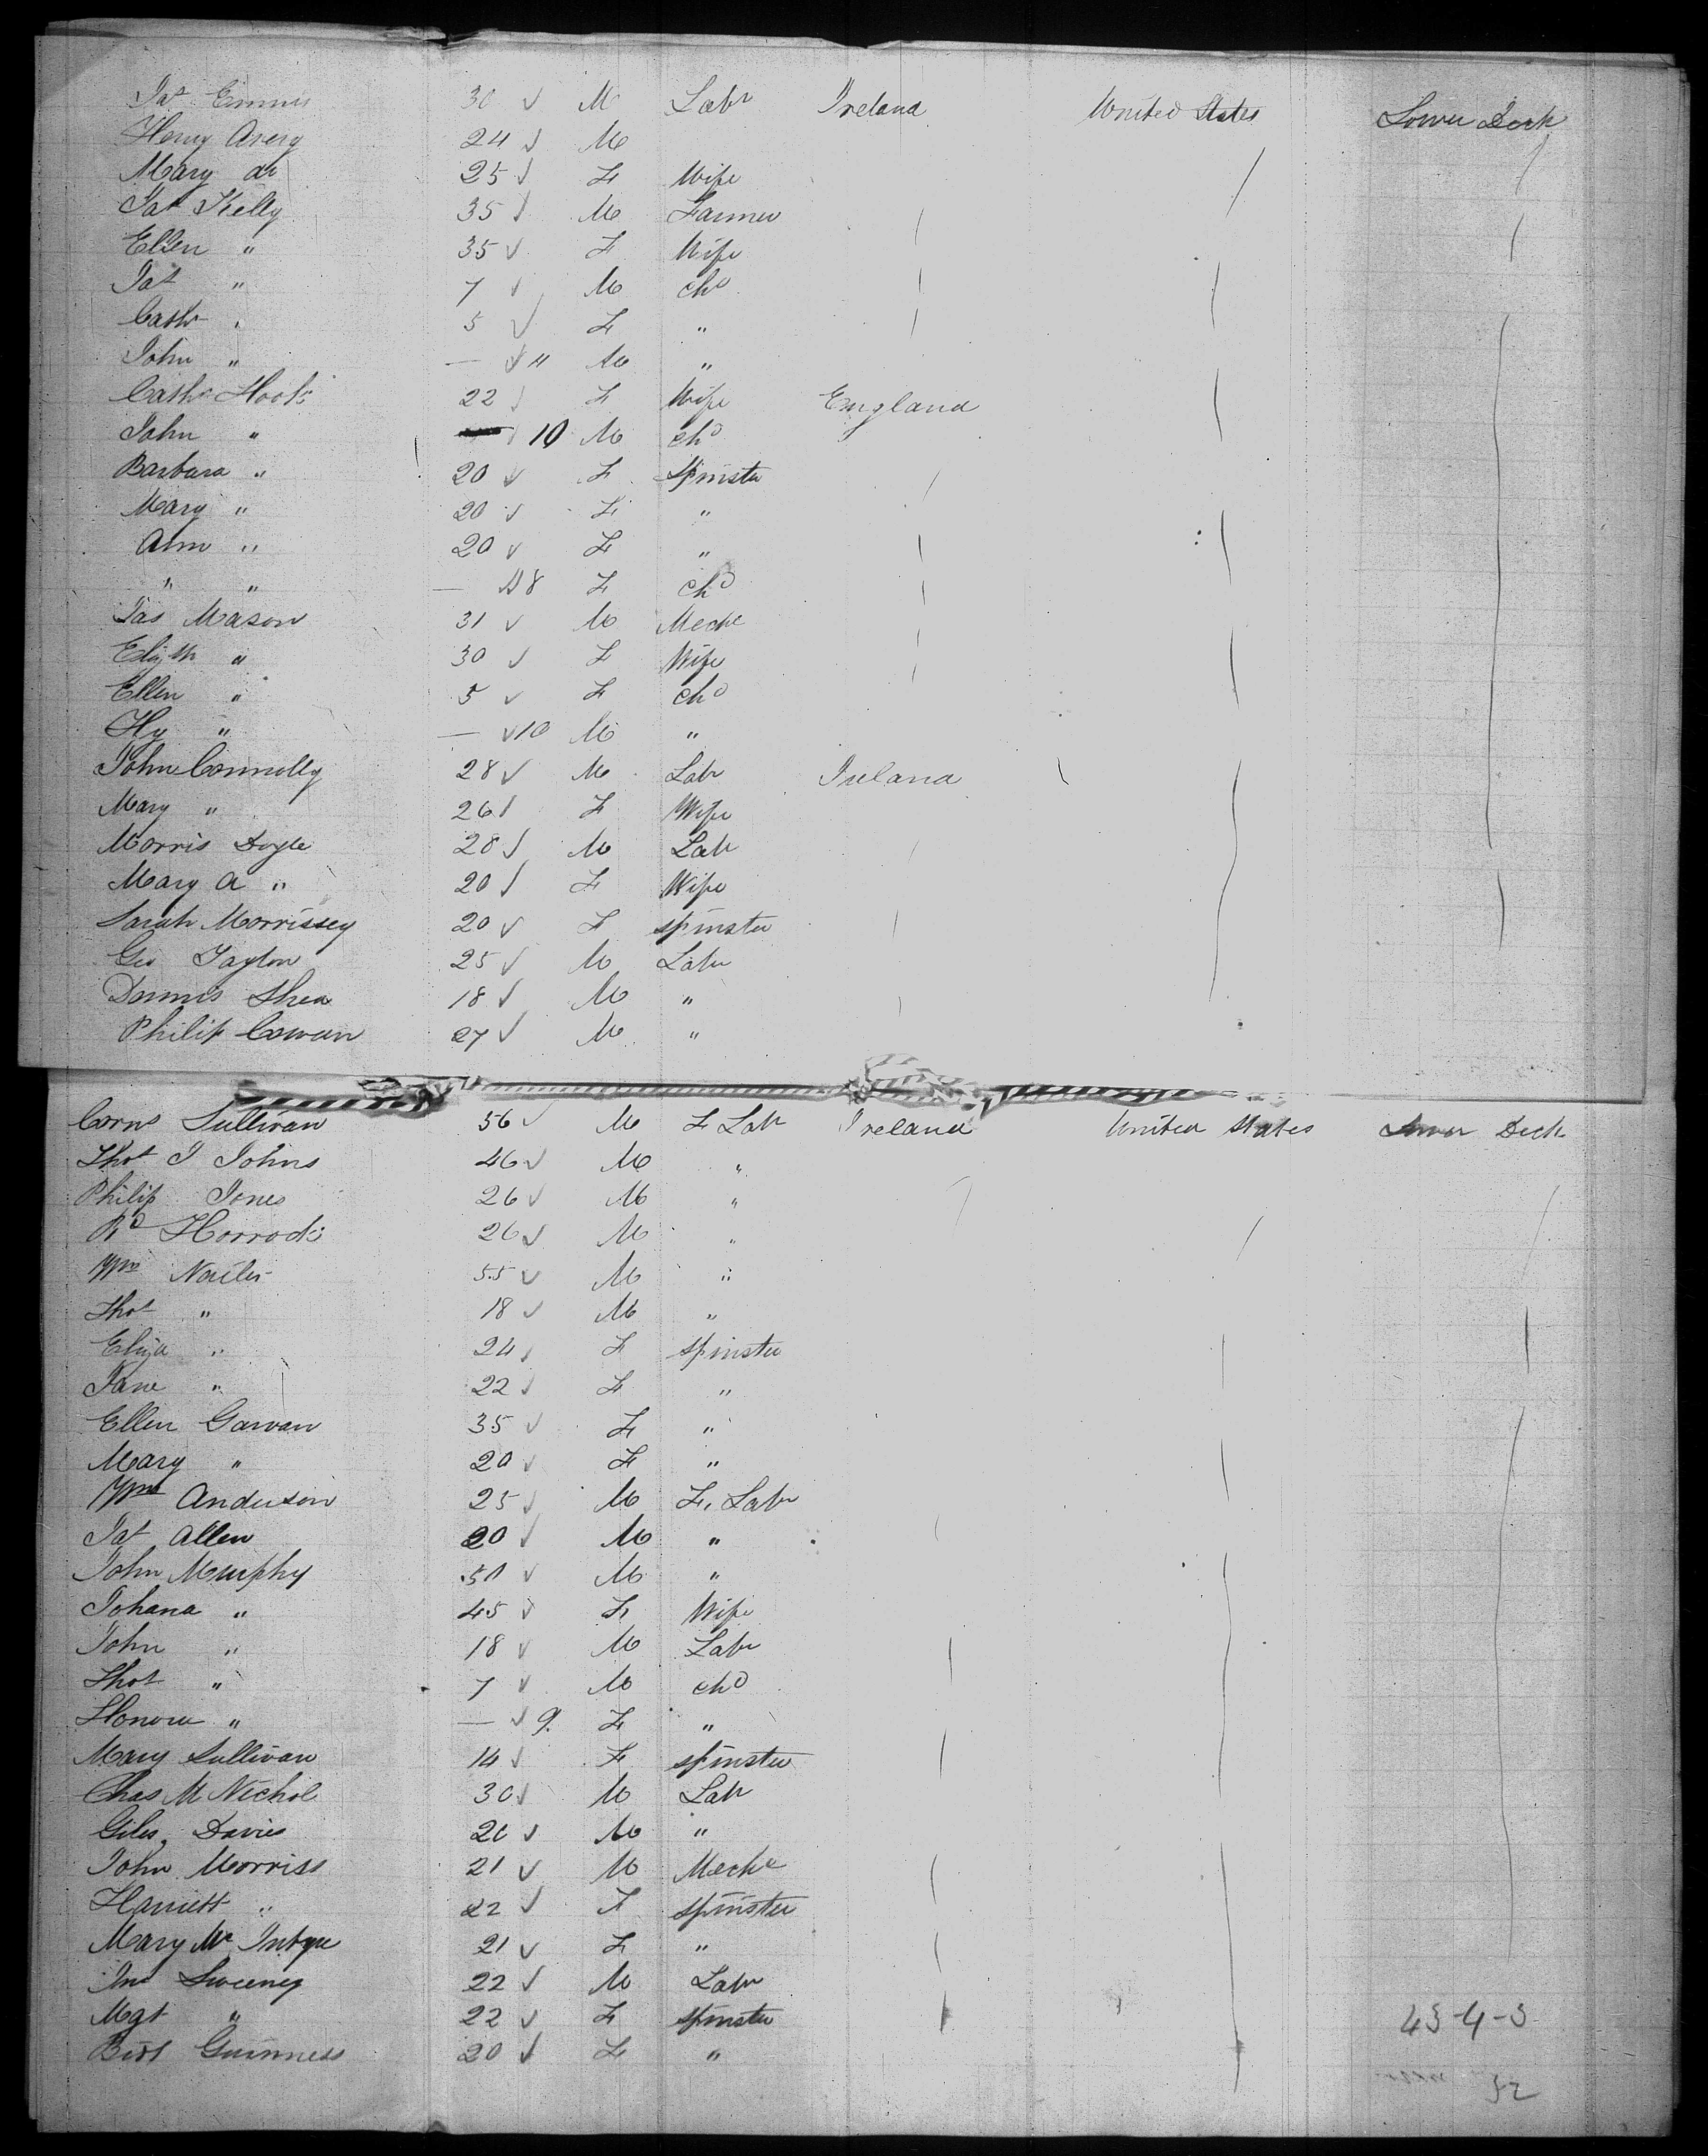 Pat Ennis 30 ✓ M Labr Ireland United States Lower Deck
Henry Avery 24 ✓ M
Mary do 25 ✓ F Wife
Pat Kelly 35 ✓ M Farmer
Ellen " 35 ✓ F Wife
Pat " 7 ✓ M chd
Cath " 5 ✓ F "
John " — ✓ 11 M "
Cath Hook 22 ✓ F Wife England
John " ✓ 10 M chd
Barbara " 20 ✓ F Spinster
Mary " 20 ✓ F "
Ann " 20 ✓ F "
" " — ✓ 8 F chd
Jas Mason 31 ✓ M Mechc
Elizth " 30 ✓ F Wife
Ellen " 5 ✓ F chd
Hy " — ✓ 10 M "
John Connolly 28 ✓ M Labr Ireland
Mary " 26 ✓ F Wife
Morris Doyle 28 ✓ M Labr
Mary A " 20 ✓ F Wife
Sarah Morrissey 20 ✓ F spinster
Geo Taylor 25 ✓ M Labr
Dennis Shea 18 ✓ M "
Philip Cowan 27 ✓ M "
Corns Sullivan 56 ✓ M F Labr Ireland United States Lower Deck
Thos J Johns 46 ✓ M "
Philip Jones 26 ✓ M "
Rd Horrocks 26 ✓ M "
Wm Nailer 55 ✓ M "
Thos " 18 ✓ M "
Eliza " 24 ✓ F spinster
Jane " 22 ✓ F "
Ellen Garvan 35 ✓ F "
Mary " 20 ✓ F "
Wm Anderson 25 ✓ M F. Labr
Pat Allen 20 ✓ M "
John Murphy 50 ✓ M "
Johana " 45 ✓ F Wife
John " 18 ✓ M Labr
Thos " 7 ✓ M chd
Honora " — ✓ 9 F "
Mary Sullivan 14 ✓ F spinster
Chas McNichol 30 ✓ M Labr
Giles Davies 20 ✓ M "
John Morriss 21 ✓ M Mechc
Harriett " 22 ✓ F spinster
Mary McIntyre 21 ✓ F "
Jno Sweeney 22 ✓ M Labr
Mgt " 22 ✓ F spinster 43-4-5
Bidt Guinness 20 ✓ F "
52